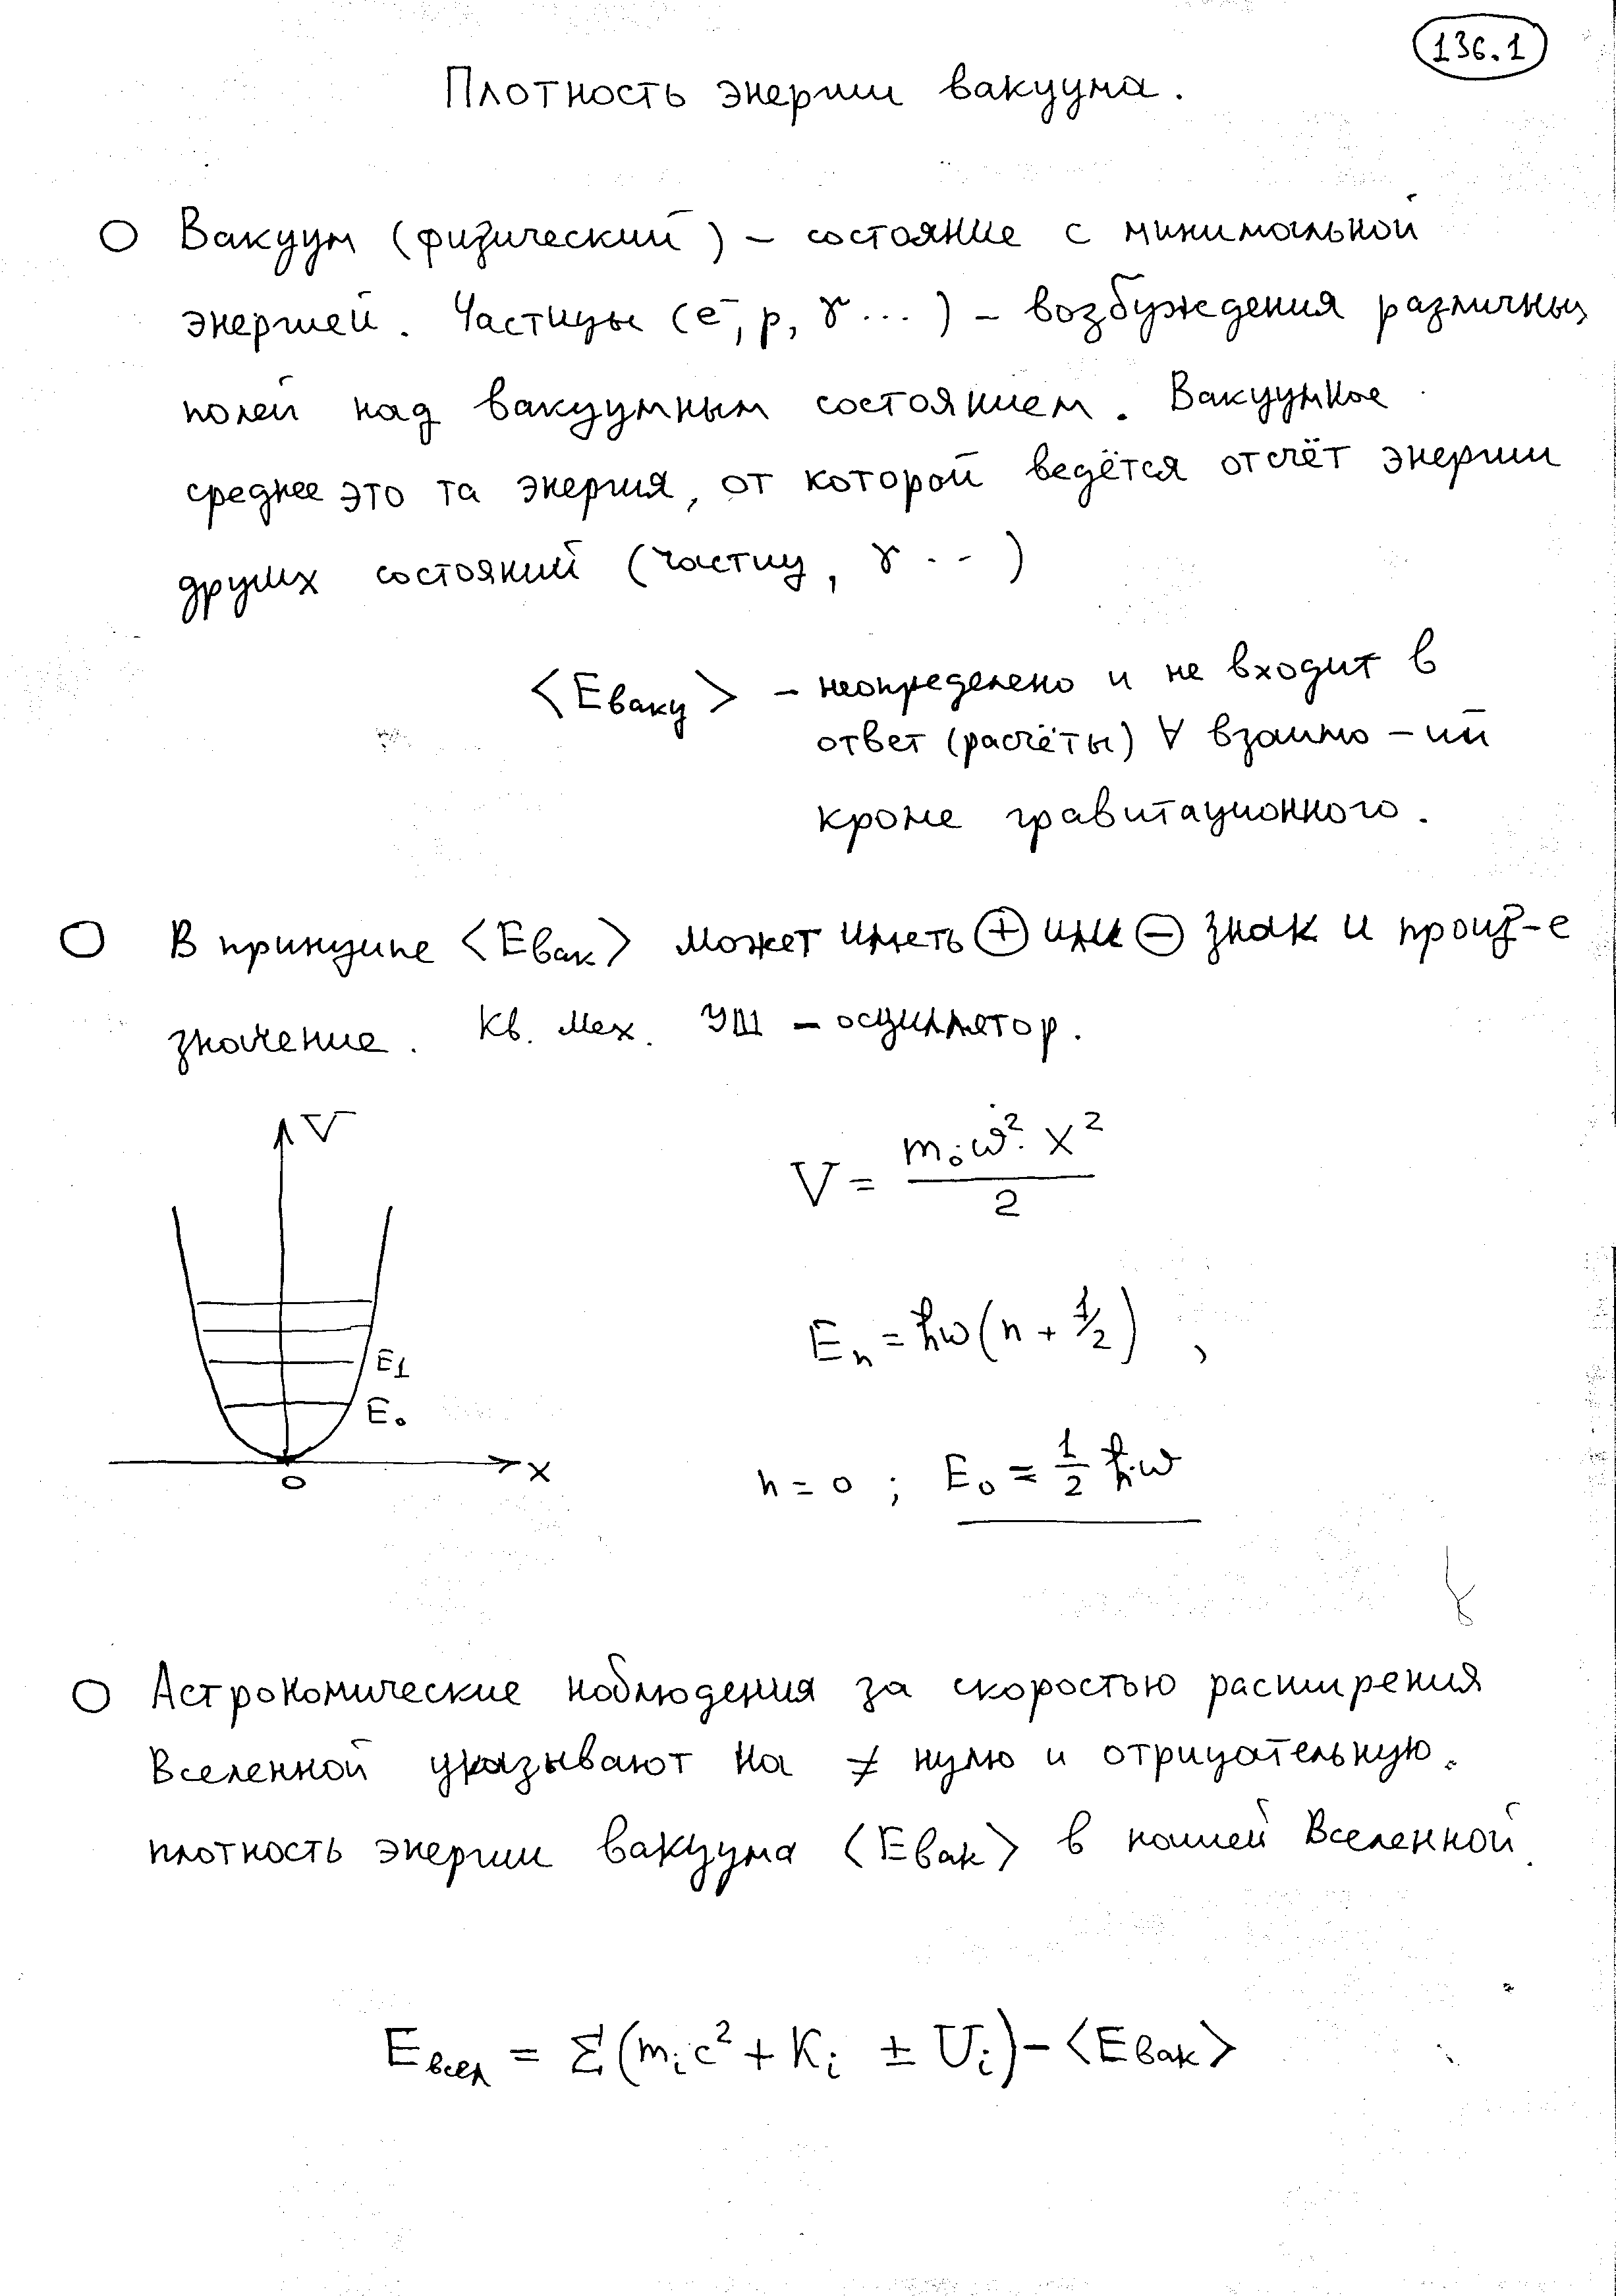 136.1
Плотность энергии вакуума.
Вакуум (физический) – состояние с минимальной
энергией. Частицы (e⁻, p, γ...) – возбуждения различных
полей над вакуумным состоянием. Вакуумное
среднее это та энергия, от которой ведётся отсчёт энергии
других состояний (частиц, γ ..)
<Eваку> – неопределено и не входит в
ответ (расчёты) ∀ взаимо–ий
кроме гравитационного.
В принципе <Eвак> может иметь ⊕ или ⊖ знак и произ-е
значение. Кв. мех. – осциллятор.
V
V = m₀ω² x² / 2
Eₙ = ħω(n + 1/2) ,
E1
E₀
x
0
n = 0 ; E₀ = 1/2 ħω
Астрономические наблюдения за скоростью расширения
Вселенной указывают на ≠ нулю и отрицательную
плотность энергии вакуума <Eвак> в нашей Вселенной.
Eвсел = Σ(mᵢc² + Kᵢ ± Uᵢ) – <Eвак>